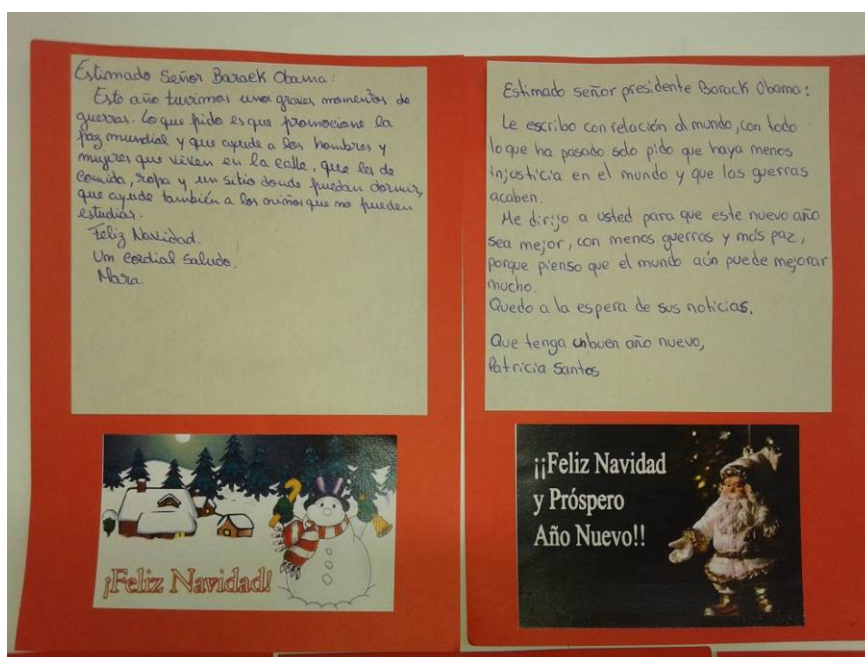 Estimado Señor Barack Obama:
Este año tuvimos unos graves momentos de
guerras. Lo que pido es que promocione la
paz mundial y que ayude a los hombres y
mujeres que viven en la calle, que les de
comida, ropa y un sitio donde puedan dormir,
que ayude también a los niños que no pueden
estudiar.
Feliz Navidad.
Um cordial saludo.
Mara
¡Feliz Navidad!
Estimado señor presidente Barack Obama:
Le escribo con relación al mundo, con todo
lo que ha pasado solo pido que haya menos
injusticia en el mundo y que las guerras
acaben.
Me dirijo a usted para que este nuevo año
sea mejor, con menos guerras y más paz,
porque pienso que el mundo aún puede mejorar
mucho.
Quedo a la espera de sus noticias.
Que tenga un buen año nuevo,
Patricia Santos
¡¡Feliz Navidad
y Próspero
Año Nuevo!!